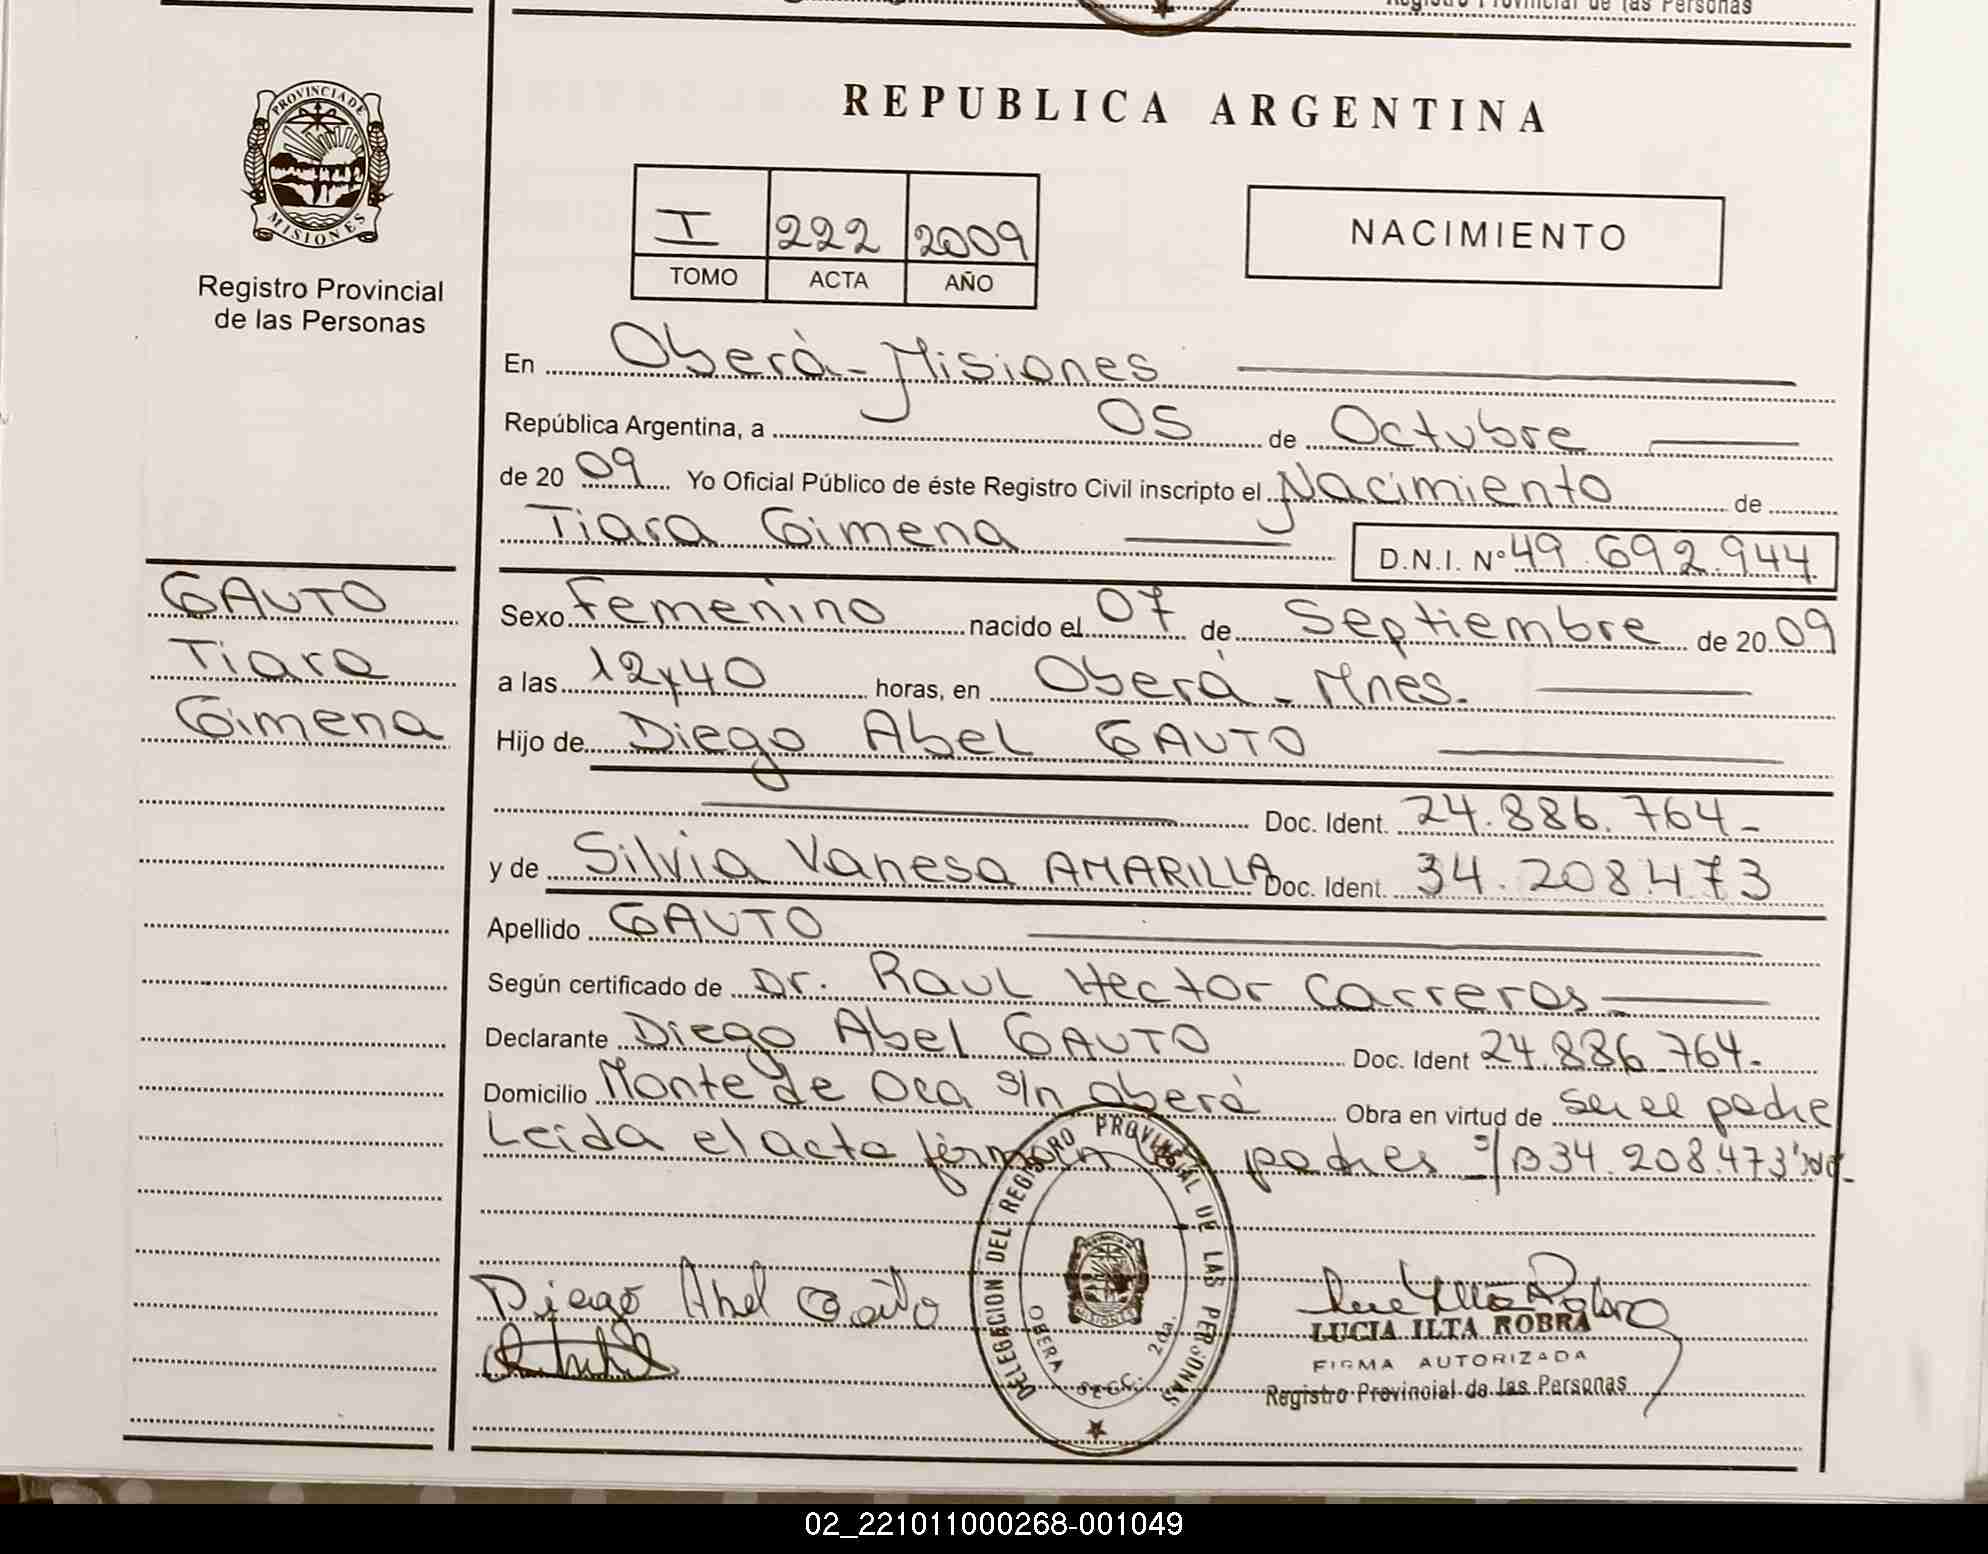 Registro Provincial de las Personas
PROVINCIA DE
MISIONES
Registro Provincial
de las Personas
REPUBLICA ARGENTINA
I 222 2009
TOMO ACTA AÑO
NACIMIENTO
En Oberà-Misiones
República Argentina, a 05 de Octubre
de 2009 Yo Oficial Público de éste Registro Civil inscripto el Nacimiento de
Tiara Gimena
D.N.I. Nº 49.692.944
GAUTO
Tiara
Gimena
Sexo Femenino nacido el 07 de Septiembre de 2009
a las 12y40 horas, en Oberá - Mnes.
Hijo de Diego Abel GAUTO
Doc. Ident. 24.886.764-
y de Silvia Vanesa AMARILLA Doc. Ident. 34.208.473
Apellido GAUTO
Según certificado de Dr. Raul Hector Carreros
Declarante Diego Abel GAUTO Doc. Ident 24.886.764-
Domicilio Monte de Oca s/n Oberá Obra en virtud de ser el padre
Leida el acta firman padres s/ 34.208.473
DELEGACION DEL REGISTRO PROVINCIAL DE LAS PERSONAS
MISIONES
OBERA SECC. 2da.
Diego Abel Gauto
LUCIA ILTA ROBRA
FIRMA AUTORIZADA
Registro Provincial de las Personas
02_221011000268-001049